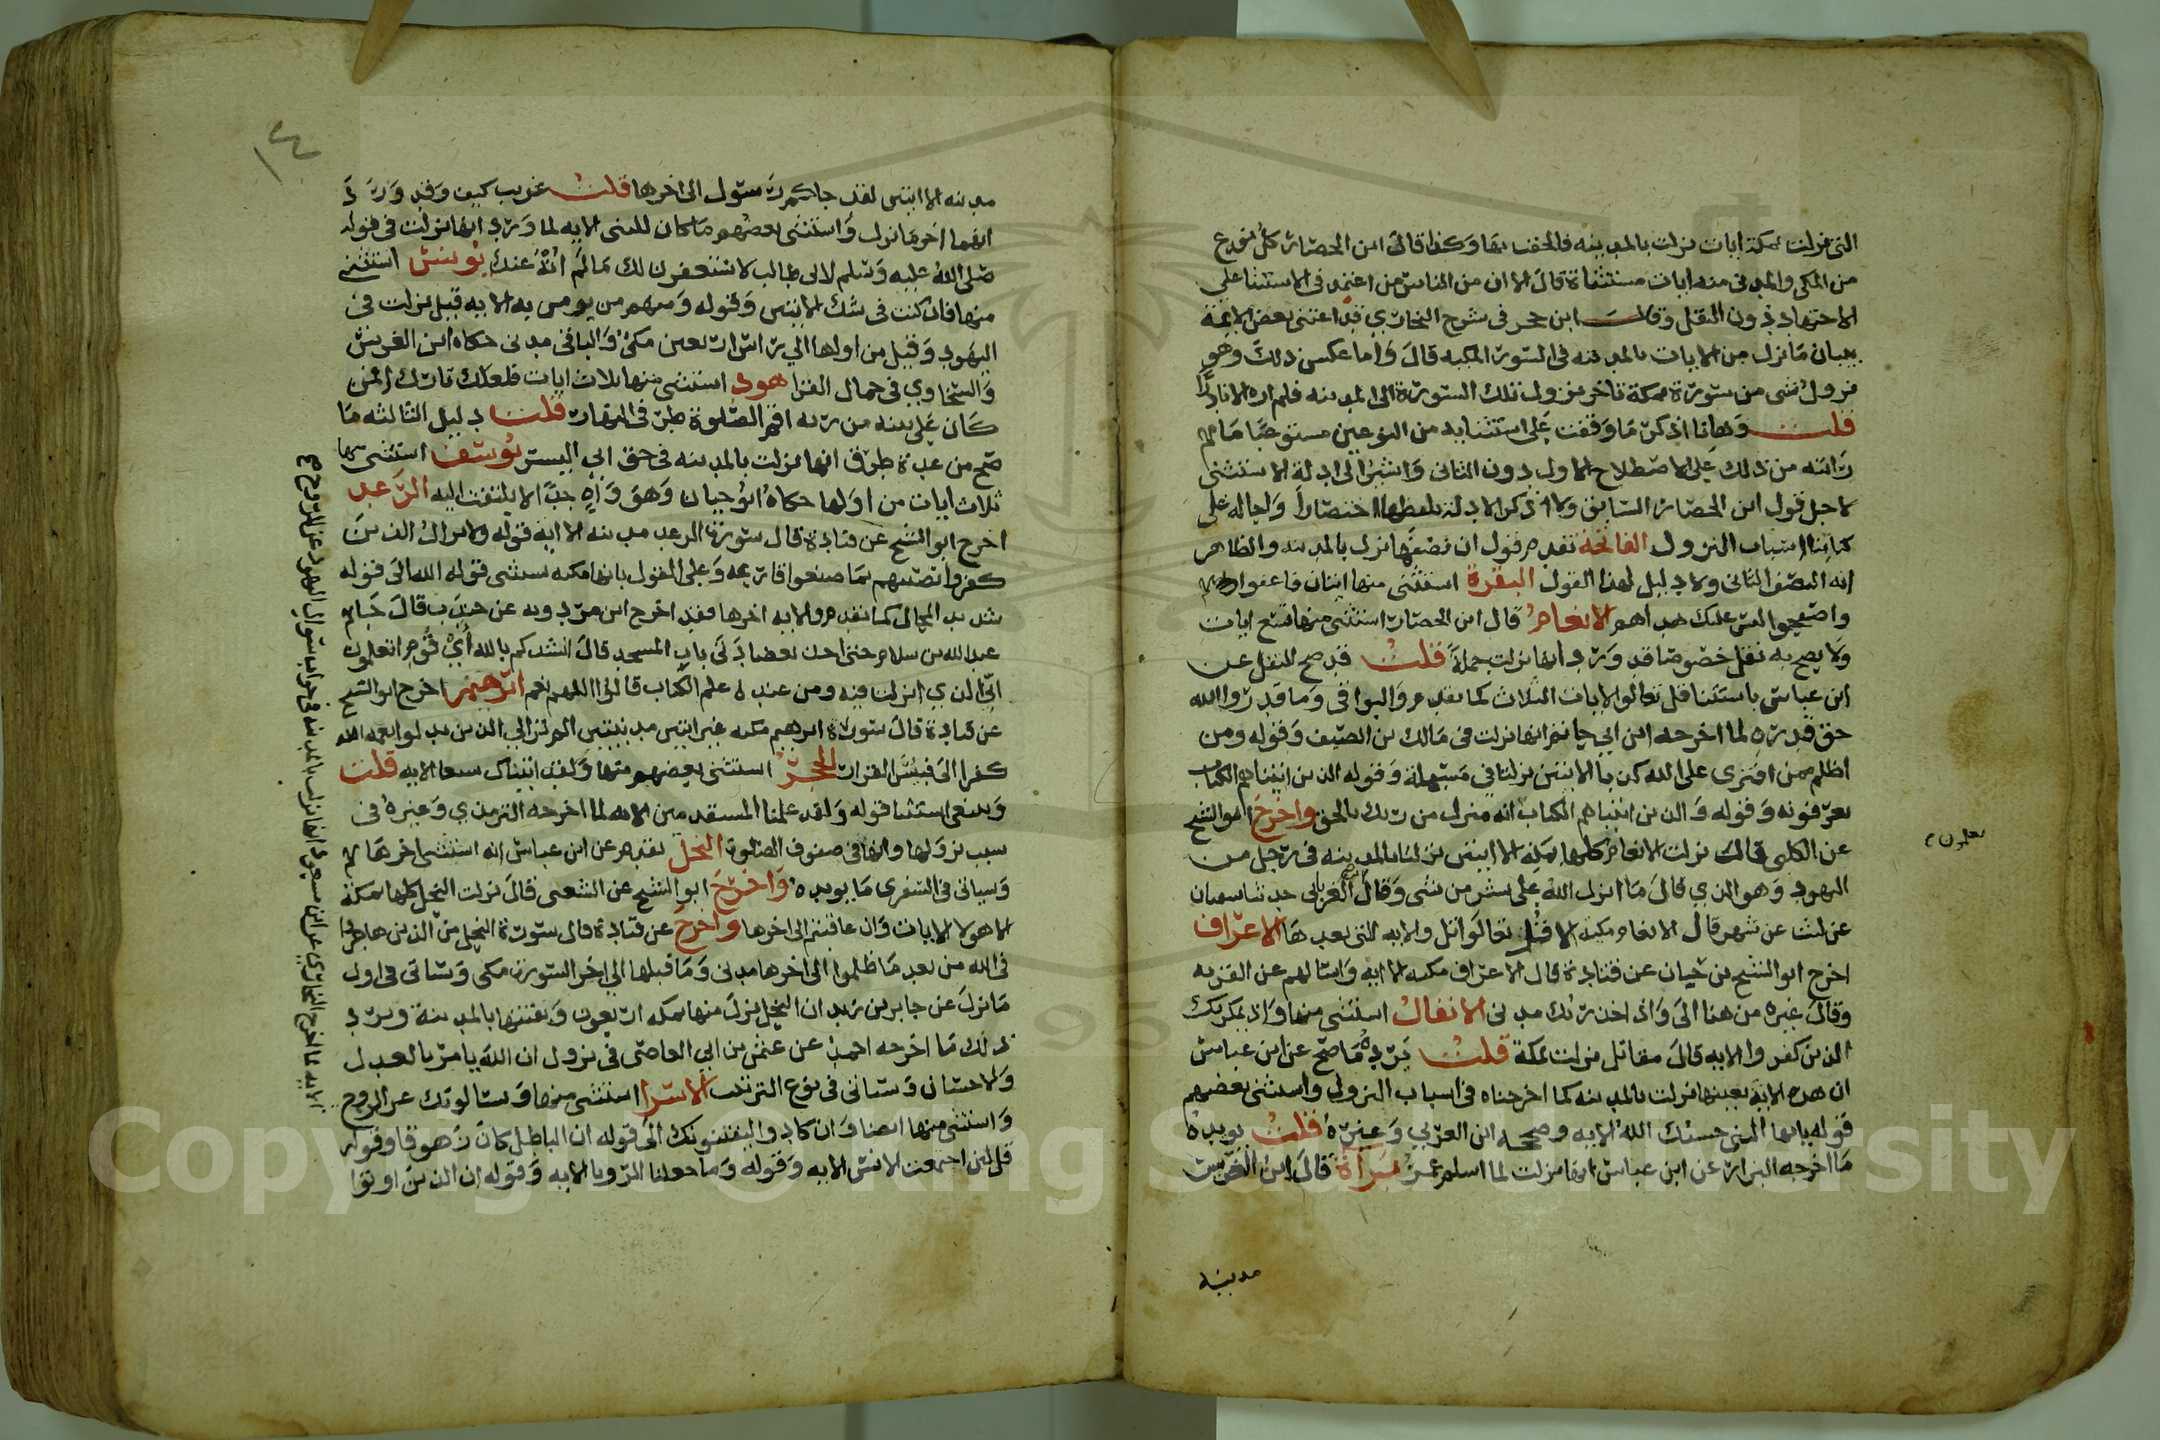 التي نزلت بمكة ايات نزلت بالمدينة فالحقت بها وكذا قال ابن الحصار كل نوع
من المكي والمدني منه ايات مستثناة قال الا ان من الناس من اعتمد في الاستثنا على
الاجتهاد دون النقل وقال ابن حجر في شرح البخاري قد اعتنى بعض الايمة
ببيان ما نزل من الايات بالمدينه في السور المكيه قال واما عكس ذلك وهو
نزول شى من سورة بمكة تاخر نزول تلك السورة الى المدينه فلم اره الا نادرا
قلت وها انا اذكر ما وقفت على استثنايه من النوعين مستوعبا ما
رايته من ذلك على الاصطلاح الاول دون الثاني واشير الى ادلة الاستثنى
لاجل قول ابن الحصار السابق ولا اذكر الادلة بلفظها اختصارا واحاله على
كتابنا اسباب النزول الفاتحة تقدم قول ان نصفها نزل بالمدينه والظاهر
انه النصف الثاني ولا دليل لهذا القول البقرة استثنى منها ايتان فاعفوا
واصفحوا ليس عليك هداهم الانعام قال ابن الحصار استثنى منها تسع ايات
ولا يصح به نقل خصوصا قد ورد انها نزلت جملة قلت قد صح النقل عن
ابن عباس باستثنا قل تعالوا الايات الثلاث كما تقدم والبواقي وما قدروا الله
حق قدره لما اخرجه ابن ابي حاتم انها نزلت في مالك بن الصيف وقوله ومن
اظلم ممن افترى على الله كذبا الايتين نزلتا في مسيلمة وقوله الذين اتيناهم الكتاب
يعرفونه وقوله والذين اتيناهم الكتاب انه منزل من ربك بالحق واخرج ابو الشيخ
يعلمون
عن الكلبي قال نزلت الانعام كلها بمكه الا ايتين نزلتا بالمدينه في رجل من
اليهود وهو الذي قال ما انزل الله على بشر من شى وقال الفريابي حدثنا سفيان
عن ليث عن شهر قال الانعام مكية الا قل تعالوا اتل والايه التى بعدها الاعراف
اخرج ابو الشيخ بن حيان عن قتادة قال الاعراف مكيه الا ايه واسالهم عن القريه
وقال غيره من هنا الى واذ اخذ ربك مدني الانفال استثنى منها واذ يمكر بك
الذين كفروا الايه قال مقاتل نزلت بمكة قلت يرده ما صح عن ابن عباس
ان هذه الاية بعينها نزلت بالمدينه كما اخرجناه في اسباب النزول واستثنى بعضهم
قوله يايها النبي حسبك الله الايه وصححه ابن العربي وغيره قلت يويده
ما اخرجه البزار عن ابن عباس انها نزلت لما اسلم عمر براة قال ابن الفرس
مدينه
مدينه الا ايتين لقد جاكم رسول الى اخرها قلت غريب كيف وقد ورد
انهما اخر ما نزل واستثنى بعضهم ما كان للنبي الايه لما ورد انها نزلت في قوله
صلى الله عليه وسلم لابي طالب لاستغفرن لك مالم انه عنك يونس استثنى
منها فان كنت في شك الايتين وقوله ومنهم من يومن به الايه قيل نزلت في
اليهود وقيل من اولها الى راس اربعين مكي والباقي مدني حكاه ابن الفرس
والسخاوي في جمال القرا هود استثنى منها ثلاث ايات فلعلك تارك افمن
كان على بينه من ربه اقم الصلوة طرفى النهار قلت دليل الثالثه ما
صح من عدة طرق انها نزلت بالمدينه في حق ابي اليسر يوسف استثنى منها
ثلاث ايات من اولها حكاه ابو حيان وهو واه جدا لا يلتفت اليه الرعد
اخرج ابو الشيخ عن قتادة قال سورة الرعد مدينه الا ايه قوله ولا يزال الذين
كفروا تصيبهم بما صنعوا قارعه وعلى القول بانها مكيه يستثنى قوله الله الى قوله
شديد المحال كما تقدم والايه اخرها فقد اخرج ابن مردويه عن جندب قال جا
عبد الله بن سلام حتى اخذ بعضادتى باب المسجد قال انشدكم بالله اي قوم اتعلمون
اني الذي انزلت فيه ومن عنده علم الكتاب قالوا اللهم نعم ابرهيم اخرج ابو الشيخ
عن قتادة قال سورة ابرهيم مكيه غير ايتين مدنيتين الم تر الى الذين بدلوا نعمه الله
كفرا الى فبيس القرار الحجر استثنى بعضهم منها ولقد اتيناك سبعا الايه قلت
وينبغى استثنا قوله ولقد علمنا المستقدمين الايه لما اخرجه الترمذي وغيره في
سبب نزولها وانها في صفوف الصلوة النحل تقدم عن ابن عباس انه استثنى اخرها
وسياتى في السفرى ما يويده واخرج ابو الشيخ عن الشعبى قال نزلت النحل كلها بمكة
الا هولا الايات وان عاقبتم الى اخرها واخرج عن قتادة قال سورة النحل من الذين هاجروا
في الله من بعد ما ظلموا الى اخرها مدني وما قبلها الى اخر السورة مكي وسياتى في اول
ما نزل عن جابر بن زيد ان النحل نزل منها بمكه اربعون وبقيتها بالمدينة ويرد
ذلك ما اخرجه احمد عن عثمن بن ابي العاصى في نزول ان الله يامر بالعدل
والاحسان وسياتى في نوع الترتيب الاسرا استثنى منها ويسالونك عن الروح
الايه لما اخرج البخاري عن ابن مسعود انها نزلت بالمدينه في جواب سوال اليهود عن الروح
واستثنى منها ايضا وان كادوا ليفتنونك الى قوله ان الباطل كان زهوقا وقوله
قل لين اجتمعت الانس الايه وقوله وما جعلنا الرويا الايه وقوله ان الذين اوتوا
Copyright © King Saud University